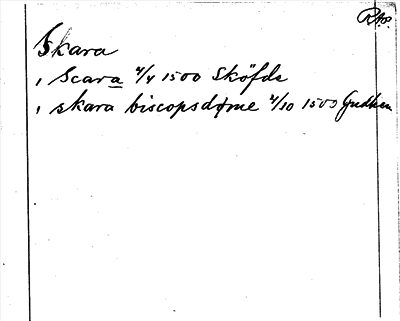 Skara
, Scara 4/4 1500 Sköfde
, skara biscopsdøme 4/10 1503 Gudhem